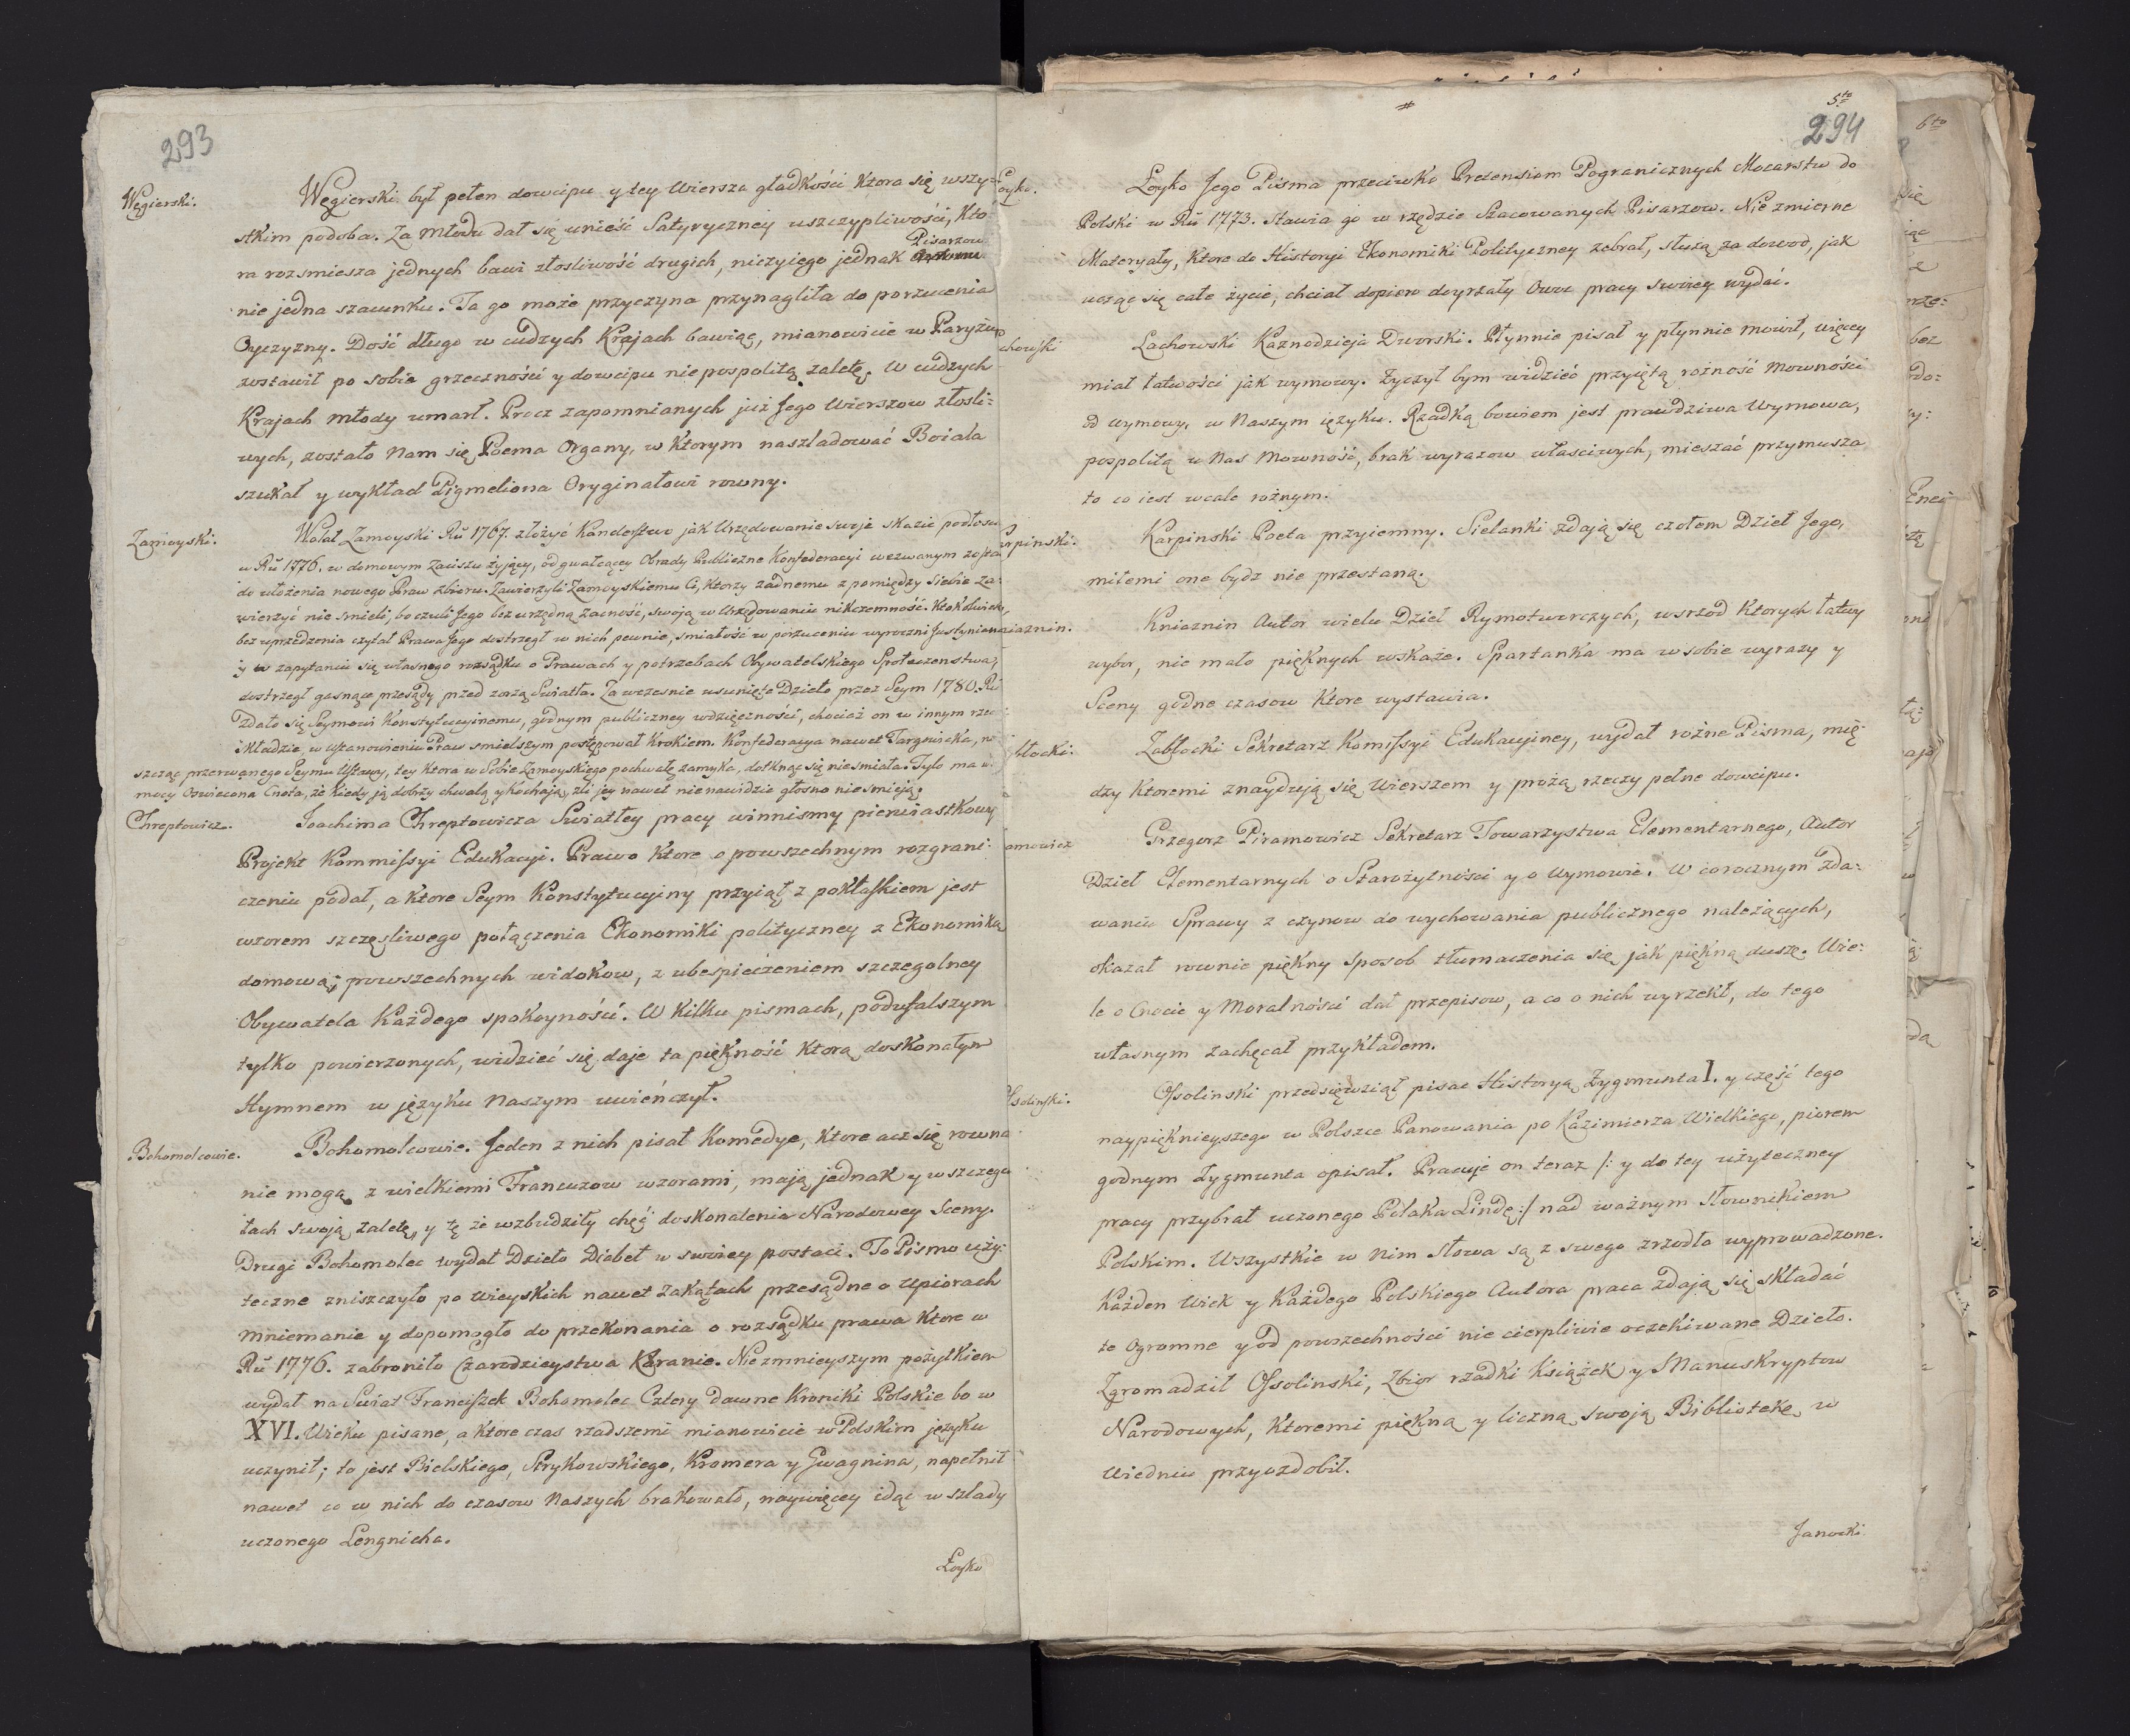 293
Węgierski.
Węgierski był pełen dowcipu y tey Wiersza gładkości Ktora się wszy=
stkim podoba. Za młodu dał się unieść Satyryczney uszczypliwości, Kto
Pisarzow
ra rozsmiesza jednych bawi złosliwość drugich, niczyiego jednak
nie jedna szacunku. Ta go może przyczyna przynagliła do porzucenia
Oyczyzny. Dość długo w cudzych Krajach bawiąc, mianowicie w Paryżu
zostawił po sobie grzeczności y dowcipu niepospolitą zaletę. W cudzych
Krajach młody umarł. Procz zapomnianych już Jego Wierszow złosli=
wych, zostało Nam się Poema Organy, w Ktorym naszladować Boiala
szukał y wykład Pigmeliona Oryginałowi rowny.
Zamoyski.
Wolał Zamoyski Rũ 1767. złożyć Kanclerstwo jak Urzędowanie swoje skazić podłosc
w Rũ 1776. w domowym Zaciszu żyjący, od gwałcącey Obrady Publiczne Konfederacyi wezwanym zosta
do ułożenia nowego Praw zbioru. Zawierzyli Zamoyskiemu Ci, Ktorzy żadnemu z pomiędzy Siebie za=
wierzyć nie smieli, bo czuli Jego bez urzędną zacność, swoją w Urzędowaniu nikczemność. Ktokolwiek,
bez uprzedzenia czytał Prawa Jego dostrzegł w nich pewnie, smiałość w porzuceniu wyroczni Justynian
y w zapytaniu się własnego rozsądku o Prawach y potrzebach Obywatelskiego Społeczenstwa,
dostrzegł gasnące przesądy przed zorzą Swiatła. Za wczesnie usunięte Dzieło przez Seym 1780. Rũ
Zdało się Seymowi Konstytucyinemu, godnym publiczney wdzięczności, chociaż on w innym rze
składzie, w Ustanowieniu Praw smielszym postępował Krokiem. Konfederacya nawet Targowicka, ni
szcząc przerwanego Seymu Ustawy, tey Ktora w Sobie Zamoyskiego pochwałę zamyka, dotknąć się niesmiała. Tyle ma w
mocy Oswiecona Cnota, że Kiedy ją dobrzy chwalą y Kochają, zli jey nawet nienawidzić głosno nie smieją.
Chreptowicz.
Joachima Chreptowicza Swiatłey pracy winnismy pierwiastkowy
Projekt Kommissyi Edukacyi. Prawo Ktore o powszechnym rozgrani=
czeniu podał, a Ktore Seym Konstytucyiny przyiął z pokłaskiem jest
wzorem szczęsliwego połączenia Ekonomiki polityczney z Ekonomiką
domową; powszechnych widokow, z ubespieczeniem szczegolney
Obywatela Każdego spokoyności. W Kilku pismach, poduffalszym
tylko powierzonych, widzieć się daje ta piękność Ktorą doskonałym
Hymnem w języku Naszym uwieńczył.
Bohomolcowie.
Bohomolcowie. Jeden z nich pisał Komedye, Ktore acz się rowna
nie mogą z wielkiemi Francuzow wzorami, mają jednak y w szczegu
łach swoją zaletę, y tę że wzbudziły chęć doskonalenia Narodowey Sceny.
Drugi Bohomolec wydał Dzieło Diabeł w swoiey postaci. To Pismo uży=
teczne zniszczyło po Wieyskich nawet Zakątach przesądne o Upiorach
mniemanie y dopomogło do przekonania o rozsądku prawa Ktore w
Rũ 1776. zabroniło Czarodzieystwa Karanie. Niezmnieyszym pożytkiem
wydał na Swiat Franciszek Bohomolec Cztery dawne Kroniki Polskie bo w
XVI. Wieku pisane, a Ktore czas rzadszemi mianowicie w Polskim języku
uczynił; to jest Bielskiego, Strykowskiego, Kromera y Gwagnina, napełnił
nawet co w nich do czasow Naszych brakowało, naywięcey idąc w szlady
uczonego Lengnicha.
Łoyko
5to
294
Łoyko.
Łoyko Jego Pisma przeciwko Pretensiom Pogranicznych Mocarstw do
Polski w Rũ 1773. stawia go w rzędzie Szacowanych Pisarzow. Nie zmierne
Materyały, Ktore do Historyi Ekonomiki Polityczney zebrał, służą za dowod, jak
ucząc się całe życie, chciał dopiero doyrzały Owoc pracy swoiey wydać.
chowski
Lachowski Kaznodzieja Dworski. Płynnie pisał y płynnie mowił, więcey
miał łatwości jak wymowy. Życzył bym widzieć przyiętą rożność mowności
od wymowy, w Naszym ięzyku. Rzadką bowiem jest prawdziwa Wymowa,
pospolitą u Nas Mowność, brak wyrazow właściwych, mieszać przymusza
to co iest wcale rożnym.
rpinski.
Karpinski Poeta przyiemny. Sielanki zdają się czołem Dzieł Jego,
miłemi one bydz nie przestaną.
iaznin.
Kniaznin Autor wielu Dzieł Rymotworczych, wsrzod Ktorych łatwy
wybor, nie mało pięknych wskaże. Spartanka ma w sobie wyrazy y
Sceny godne czasow Ktore wystawia.
błocki.
Zabłocki Sekretarz Komissyi Edukacyiney, wydał rożne Pisma, mię=
dzy Ktoremi znaydują się Wierszem y prozą rzeczy pełne dowcipu.
amowicz
Grzegorz Piramowicz Sekretarz Towarzystwa Elementarnego, Autor
Dzieł Elementarnych o Starożytności y o Wymowie. W corocznym Zda=
waniu Sprawy z czynow do wychowania publicznego należących,
okazał rownie piękny Sposob tłumaczenia się jak piękną duszę. Wie=
le o Cnocie y Moralności dał przepisow, a co o nich wyrzekł, do tego
własnym zachęcał przykładem.
ssolinski.
Ossolinski przedsięwziął pisać Historyą Zygmunta I. y część tego
naypięknieyszego w Polszce Panowania po Kazimierza Wielkiego, piorem
godnym Zygmunta opisał. Pracuje on teraz /: y do tey użyteczney
pracy przybrał uczonego Polaka Lindę :/ nad ważnym Słownikiem
Polskim. Wszystkie w nim słowa są z swego zrzodła wyprowadzone.
Każden Wiek y Każdego Polskiego Autora praca zdają się składać
te Ogromne y od powszechności nie cierpliwie oczekiwane Dzieło.
Zgromadził Ossolinski, Zbior rzadki Książek y Manuskryptow
Narodowych, Ktoremi piękną y liczną swoją Bibliotekę w
Wiedniu przyozdobił.
Janocki
6to